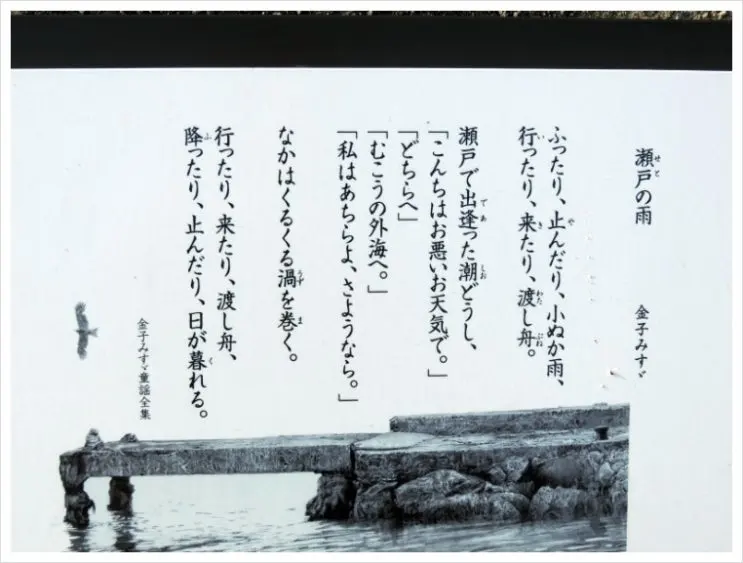 瀬戸の雨　金子みすゞ
ふったり、止んだり、小ぬか雨、
行ったり、来たり、渡し舟。
瀬戸で出逢った潮どうし、
「こんちはお悪いお天気で。」
「どちらへ」
「むこうの外海へ。」
「私はあちらよ、さようなら。」
なかはくるくる渦を巻く。
行ったり、来たり、渡し舟、
降ったり、止んだり、日が暮れる。
金子みすゞ童謡全集